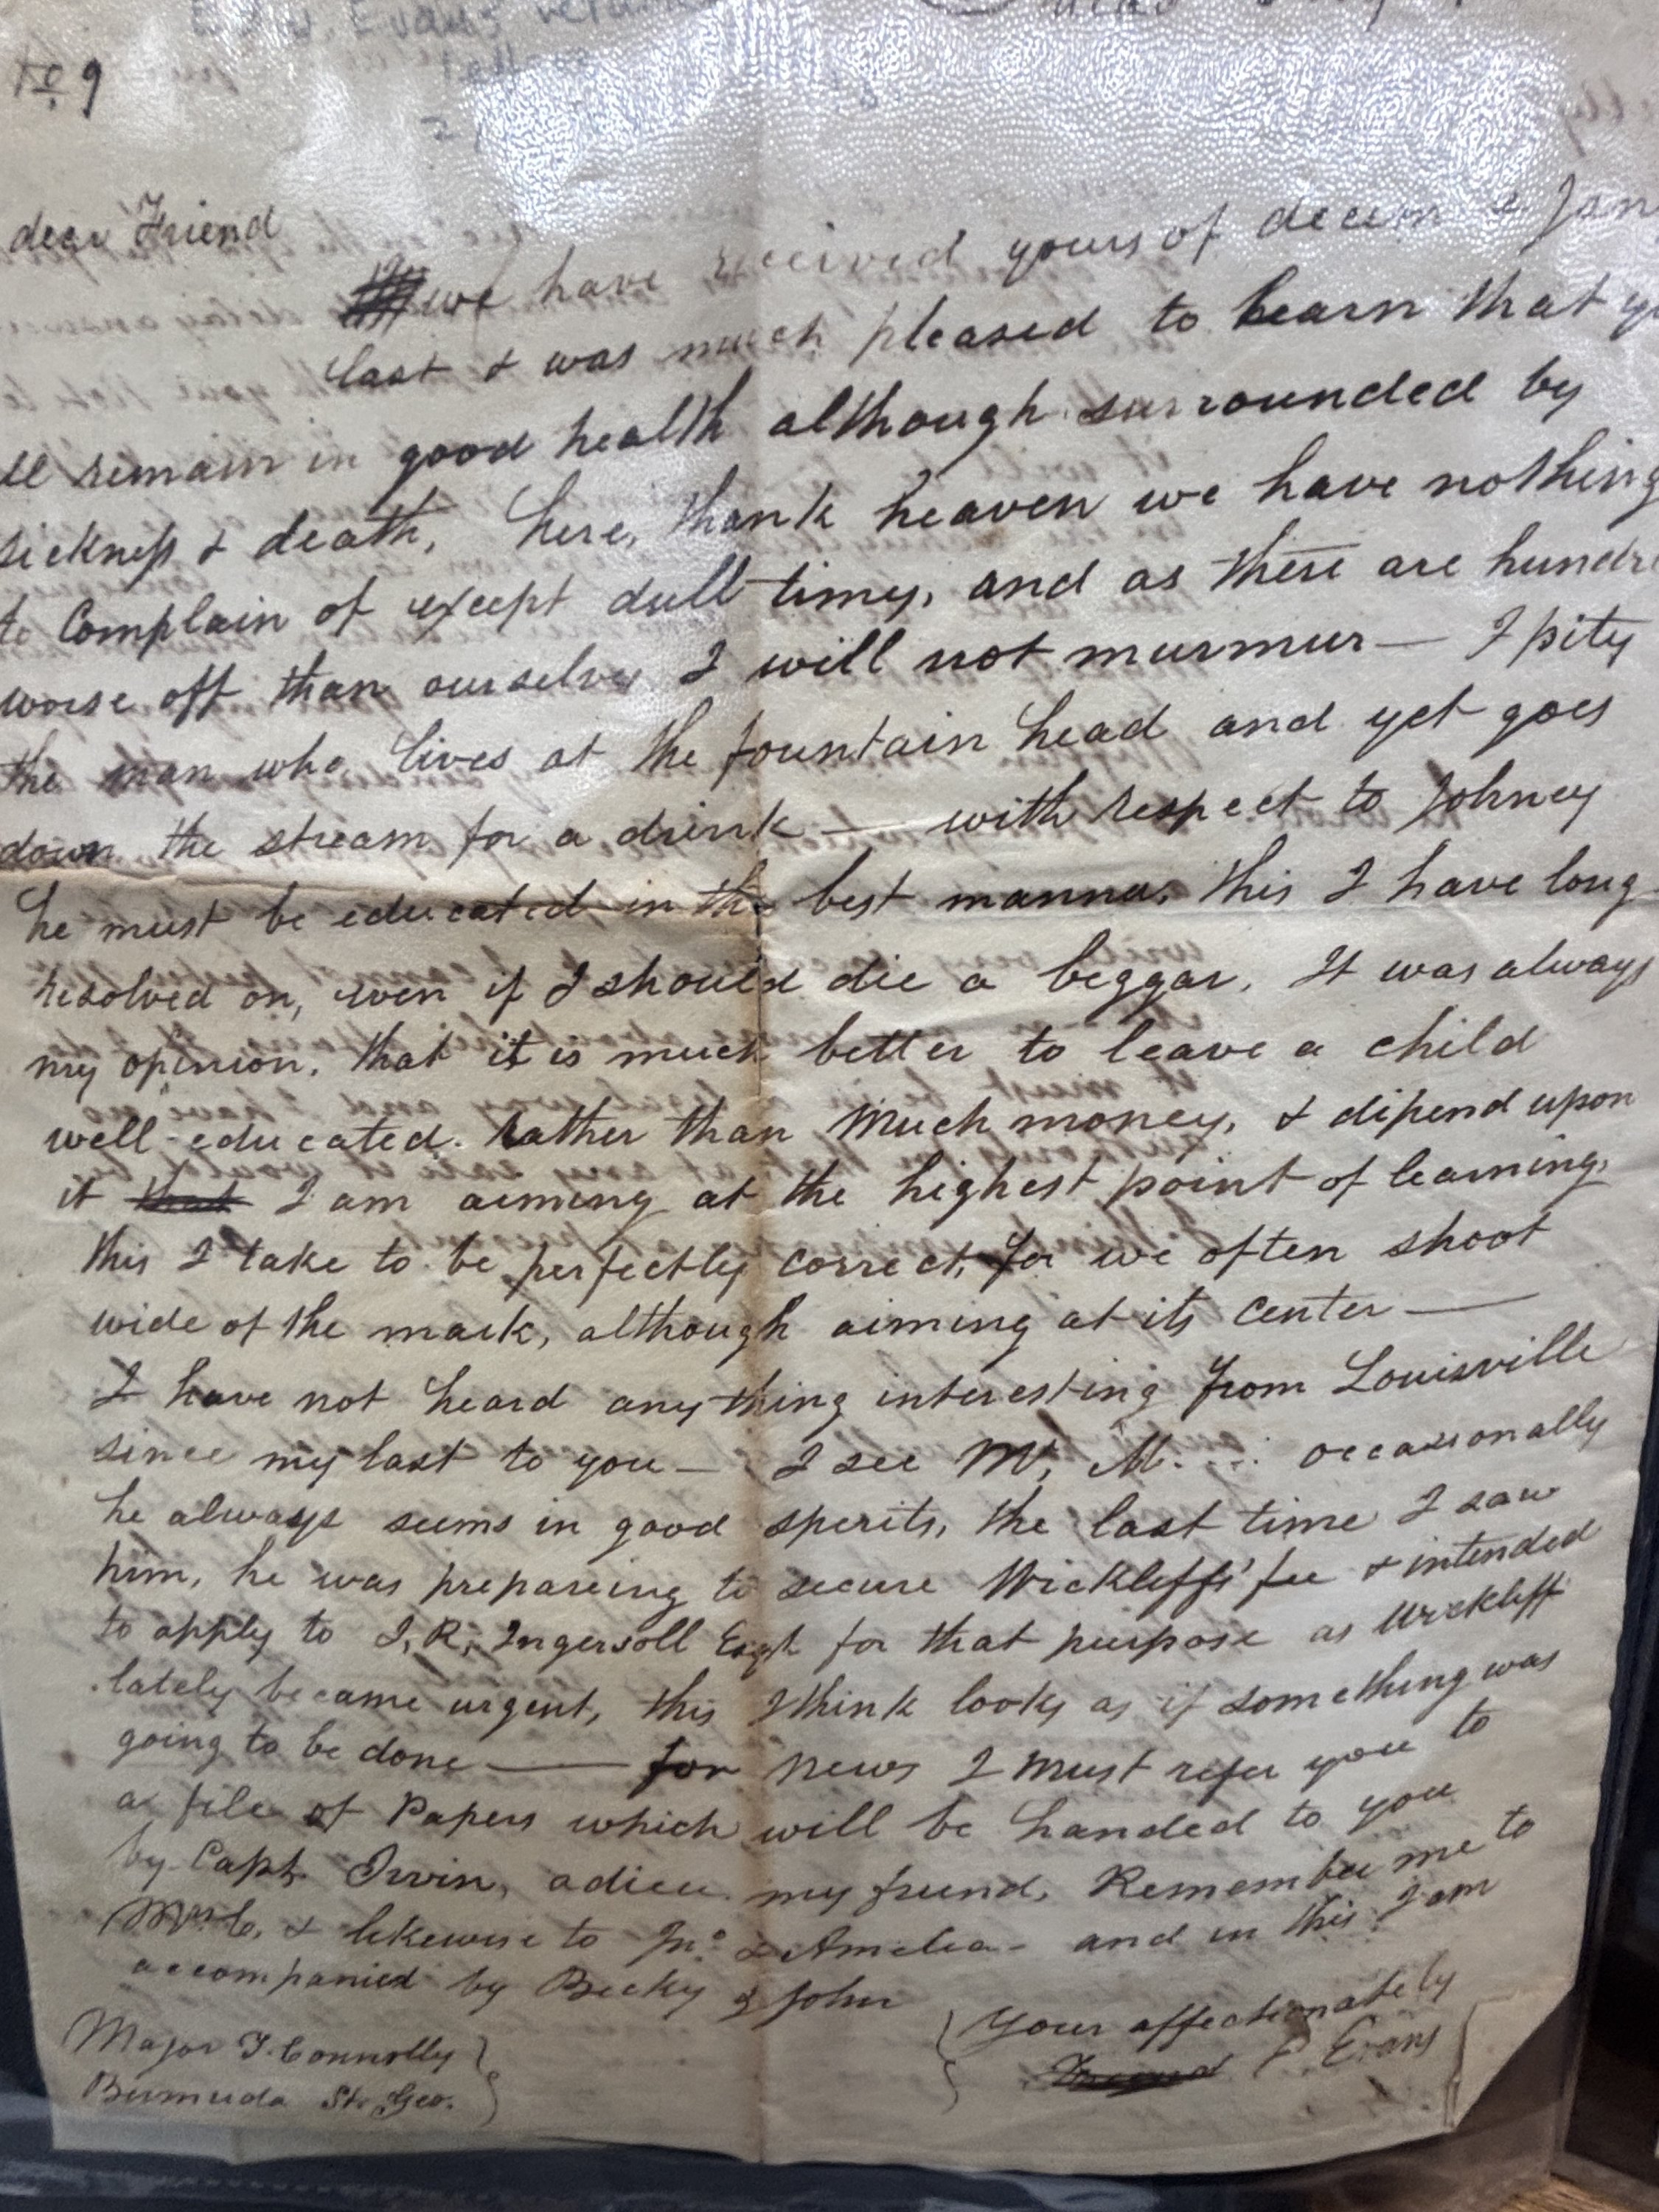 Evans
No 9
dear Friend
we have received yours of decem & Jan
last & was much pleased to learn that
remain in good health although surrounded by
sickness & death, here, thank heaven we have nothing
to Complain of except dull times, and as there are hundre
worse off than ourselves I will not murmur — I pity
the man who lives at the fountain head and yet goes
down the stream for a drink — with respect to Johney
he must be educated in the best manna, this I have long
resolved on, even if I should die a beggar, It was always
my opinion, that it is much better to leave a child
well educated. Rather than Much money, & dipend upon
it that I am aiming at the highest point of learning,
this I take to be perfectly correct, for we often shoot
wide of the mark, although aiming at its center —
I have not heard anything interesting from Louisville
since my last to you — I see Mr. M.... occasionally
he always seems in good sperits, the last time I saw
him, he was prepareing to secure Wickliffs' fee & intended
to apply to J. R. Ingersoll Esqr for that purpose as Wickliff
lately became urgent, this I think looks as if something was
going to be done — for news I must refer you to
a file of Papers which will be handed to you
by Capt. Irvin, adieu my friend, Remember me to
Mrs C, & likewise to Jno & Amelia - and in this I am
accompanied by Becky & John
Your affectionately
Friend P Evans
Major J. Connolly
Bermuda St. Geo.